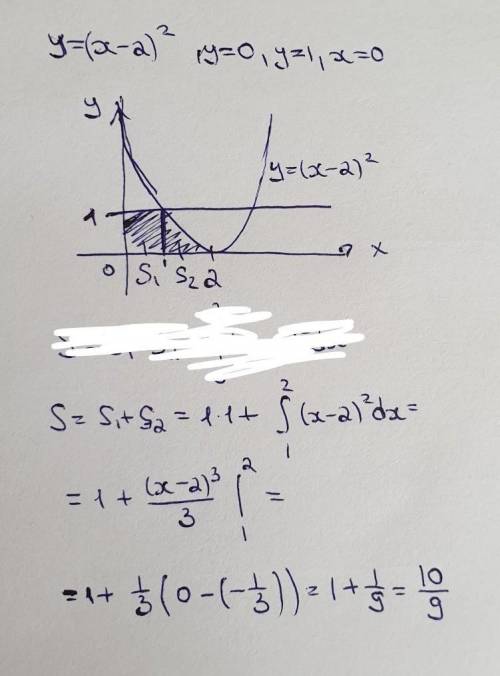 y=(x-2)² , y=0, y=1, x=0
y
y=(x-2)²
1
x
0 S₁ 1 S₂ 2
S= S₁+S₂ = 1·1+ ∫₁² (x-2)²dx=
= 1 + (x-2)³/3 |₁² =
= 1+ 1/3 (0-(-1/3)) = 1+1/9 = 10/9